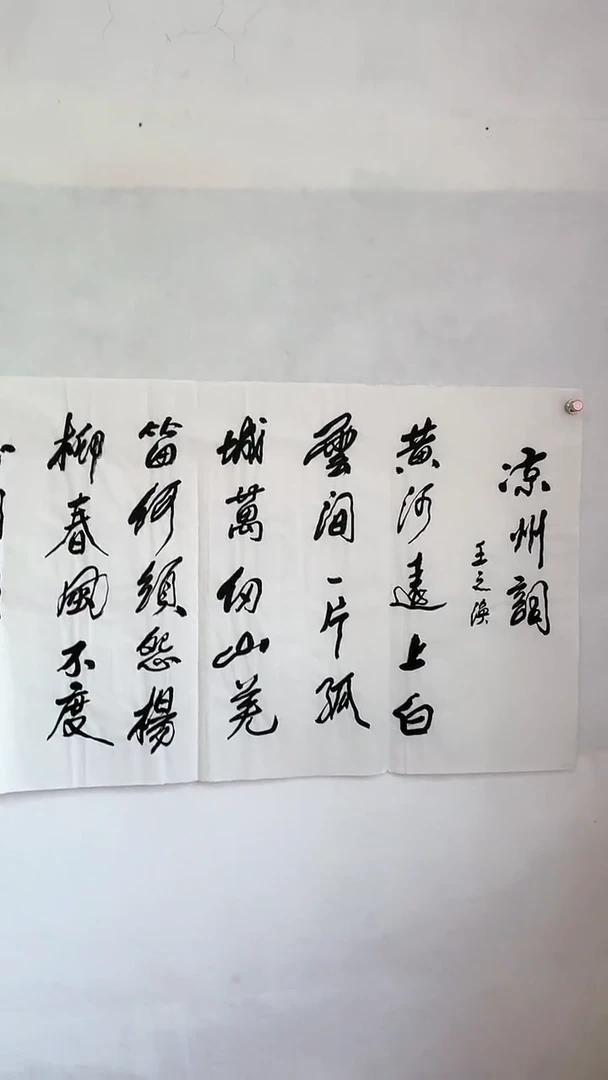 凉州詞
王之渙
黄河遠上白
雲間一片孤
城萬仞山羌
笛何須怨楊
柳春風不度